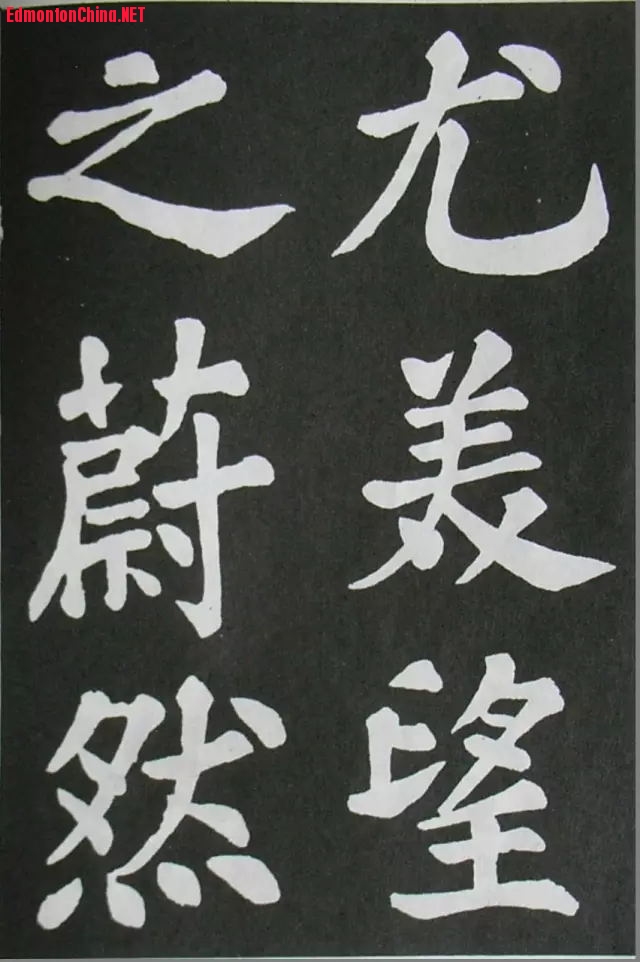 EdmontonChina.NET
尤美望
之蔚然